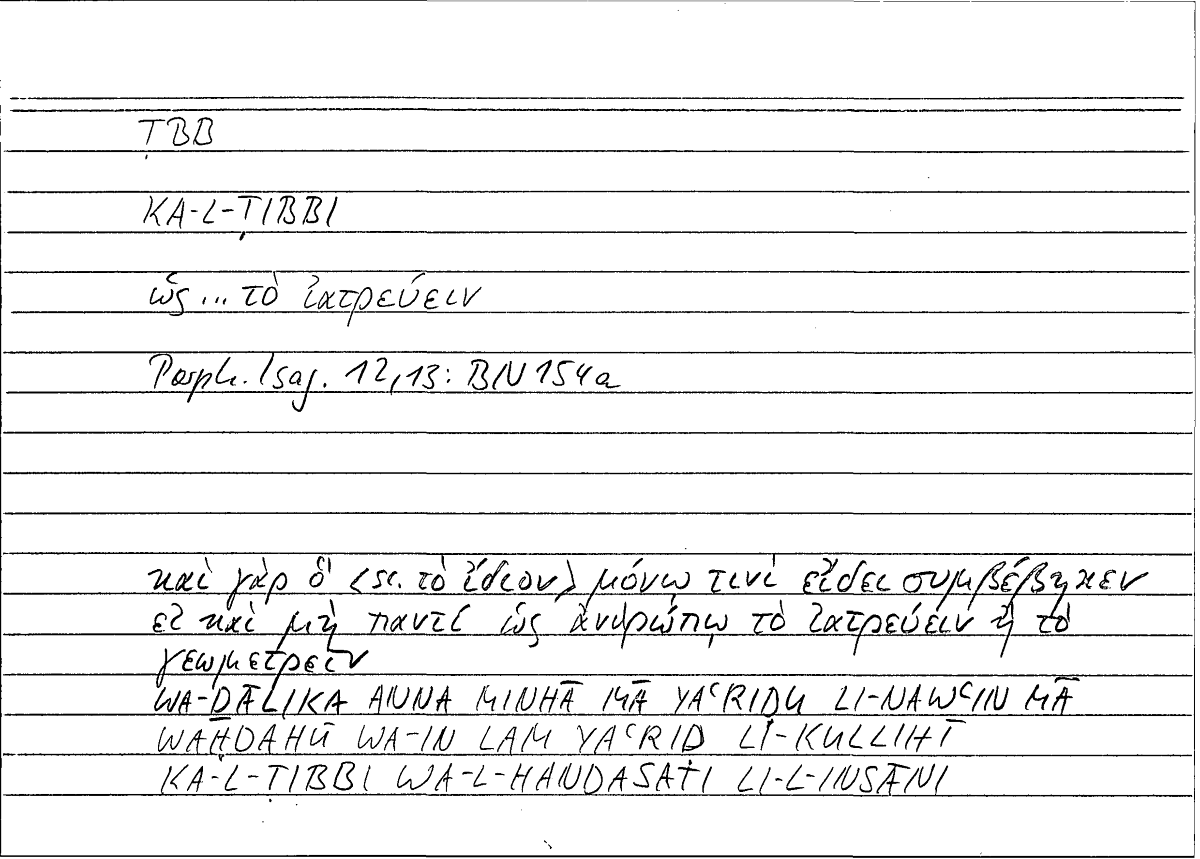 ṬBB
KA-L-ṬIBBI
ὡς ... τὸ ἰατρεύειν
Porph. Isag. 12,13: BN 154a
καὶ γὰρ ὃ <sc. τὸ ἴδιον> μόνῳ τινὶ εἴδει συμβέβηκεν
εἰ καὶ μὴ παντί ὡς ἀνθρώπῳ τὸ ἰατρεύειν ἢ τὸ
γεωμετρεῖν
WA-ḎĀLIKA ANNA MINHĀ MĀ YAʿRIḌU LI-NAWʿIN MĀ
WAḤDAHŪ WA-IN LAM YAʿRIḌ LI-KULLIHĪ
KA-L-ṬIBBI WA-L-HANDASATI LI-L-INSĀNI